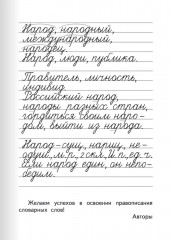 Народ, народный,
международный,
народец.
Народ, люди, публика.
Правитель, личность,
индивид.
Российский народ,
народы разных стран,
гордиться своим наро-
дом, выйти из народа.
Народ-сущ., нариц., не-
одуш., м.р., 2 скл., И.п., ед.ч.
Если народ един, он непо-
бедим.
Желаем успехов в освоении правописания
словарных слов!
Авторы